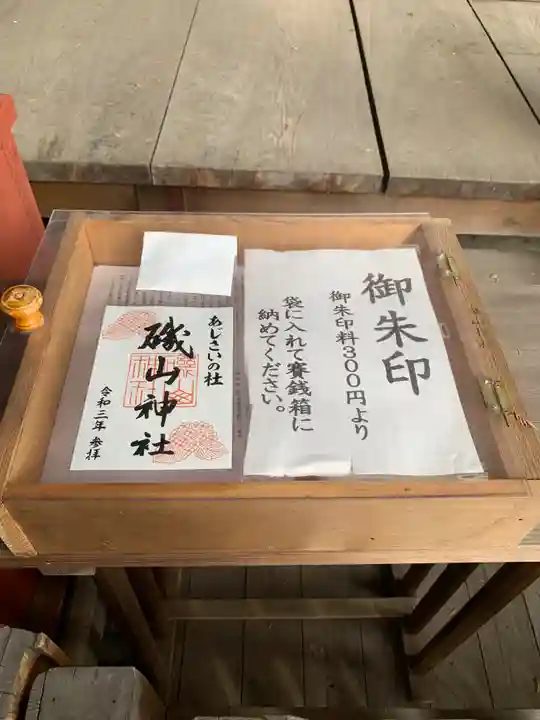 御朱印
御朱印料300円より
袋に入れて賽銭箱に
納めてください。
あじさいの杜
磯山神社
令和三年 参拝